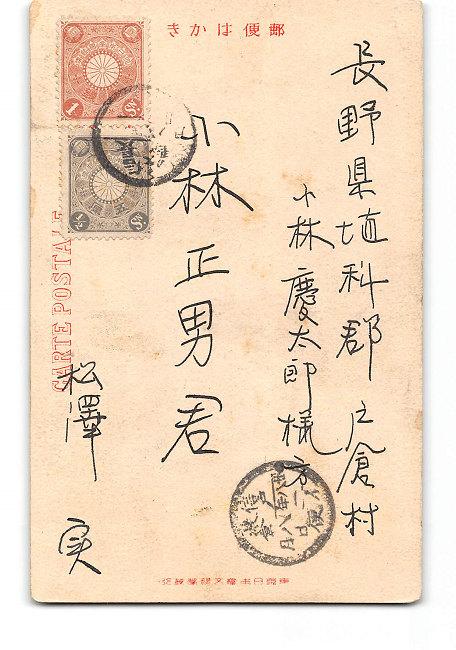 郵便はかき
長野県埴科郡戸倉村
小林慶太郎様方
小林正男君
松澤 実
CARTE POSTALE
1 Sn
½ Sn